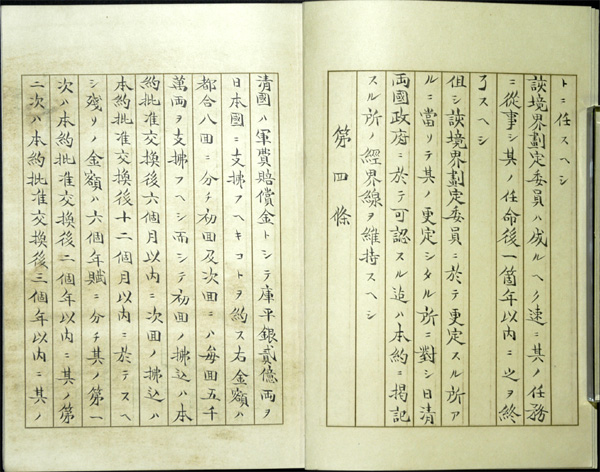 トニ任スヘシ
該境界劃定委員ハ成ルヘク速ニ其ノ任務
ニ從事シ其ノ任命後一箇年以內ニ之ヲ終
了スヘシ
但シ該境界劃定委員ニ於テ更定スル所ア
ルニ當リテ其ノ更定シタル所ニ對シ日淸
兩國政府ニ於テ可認スル迄ハ本約ニ揭記
スル所ノ經界線ヲ維持スヘシ
第四條
淸國ハ軍費賠償金トシテ庫平銀貳億兩ヲ
日本國ニ支拂フヘキコトヲ約ス右金額ハ
都合八回ニ分チ初回及次回ニハ每回五千
萬兩ヲ支拂フヘシ而シテ初回ノ拂込ハ本
約批准交換後六個月以內ニ次回ノ拂込ハ
本約批准交換後十二個月以內ニ於テスヘ
シ殘リノ金額ハ六個年賦ニ分チ其ノ第一
次ハ本約批准交換後二個年以內ニ其ノ第
二次ハ本約批准交換後三個年以內ニ其ノ